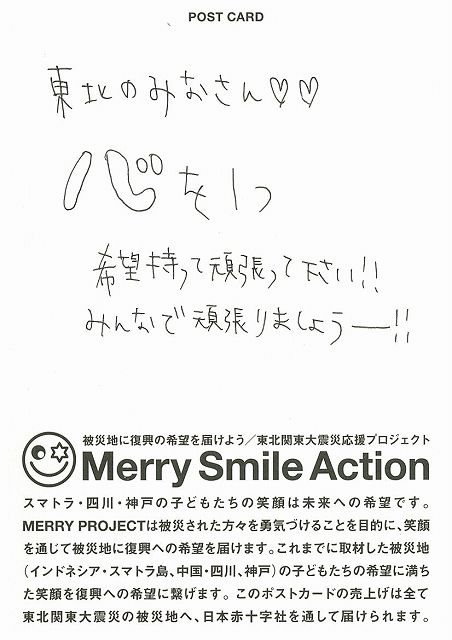 POST CARD
東北のみなさん♡♡
心を1つ
希望持って頑張って下さい!!
みんなで頑張りましょうー!!
被災地に復興の希望を届けよう／東北関東大震災応援プロジェクト
Merry Smile Action
スマトラ・四川・神戸の子どもたちの笑顔は未来への希望です。
MERRY PROJECTは被災された方々を勇気づけることを目的に、笑顔
を通じて被災地に復興への希望を届けます。これまでに取材した被災地
（インドネシア・スマトラ島、中国・四川、神戸）の子どもたちの希望に満ち
た笑顔を復興への希望に繋げます。このポストカードの売上げは全て
東北関東大震災の被災地へ、日本赤十字社を通して届けられます。